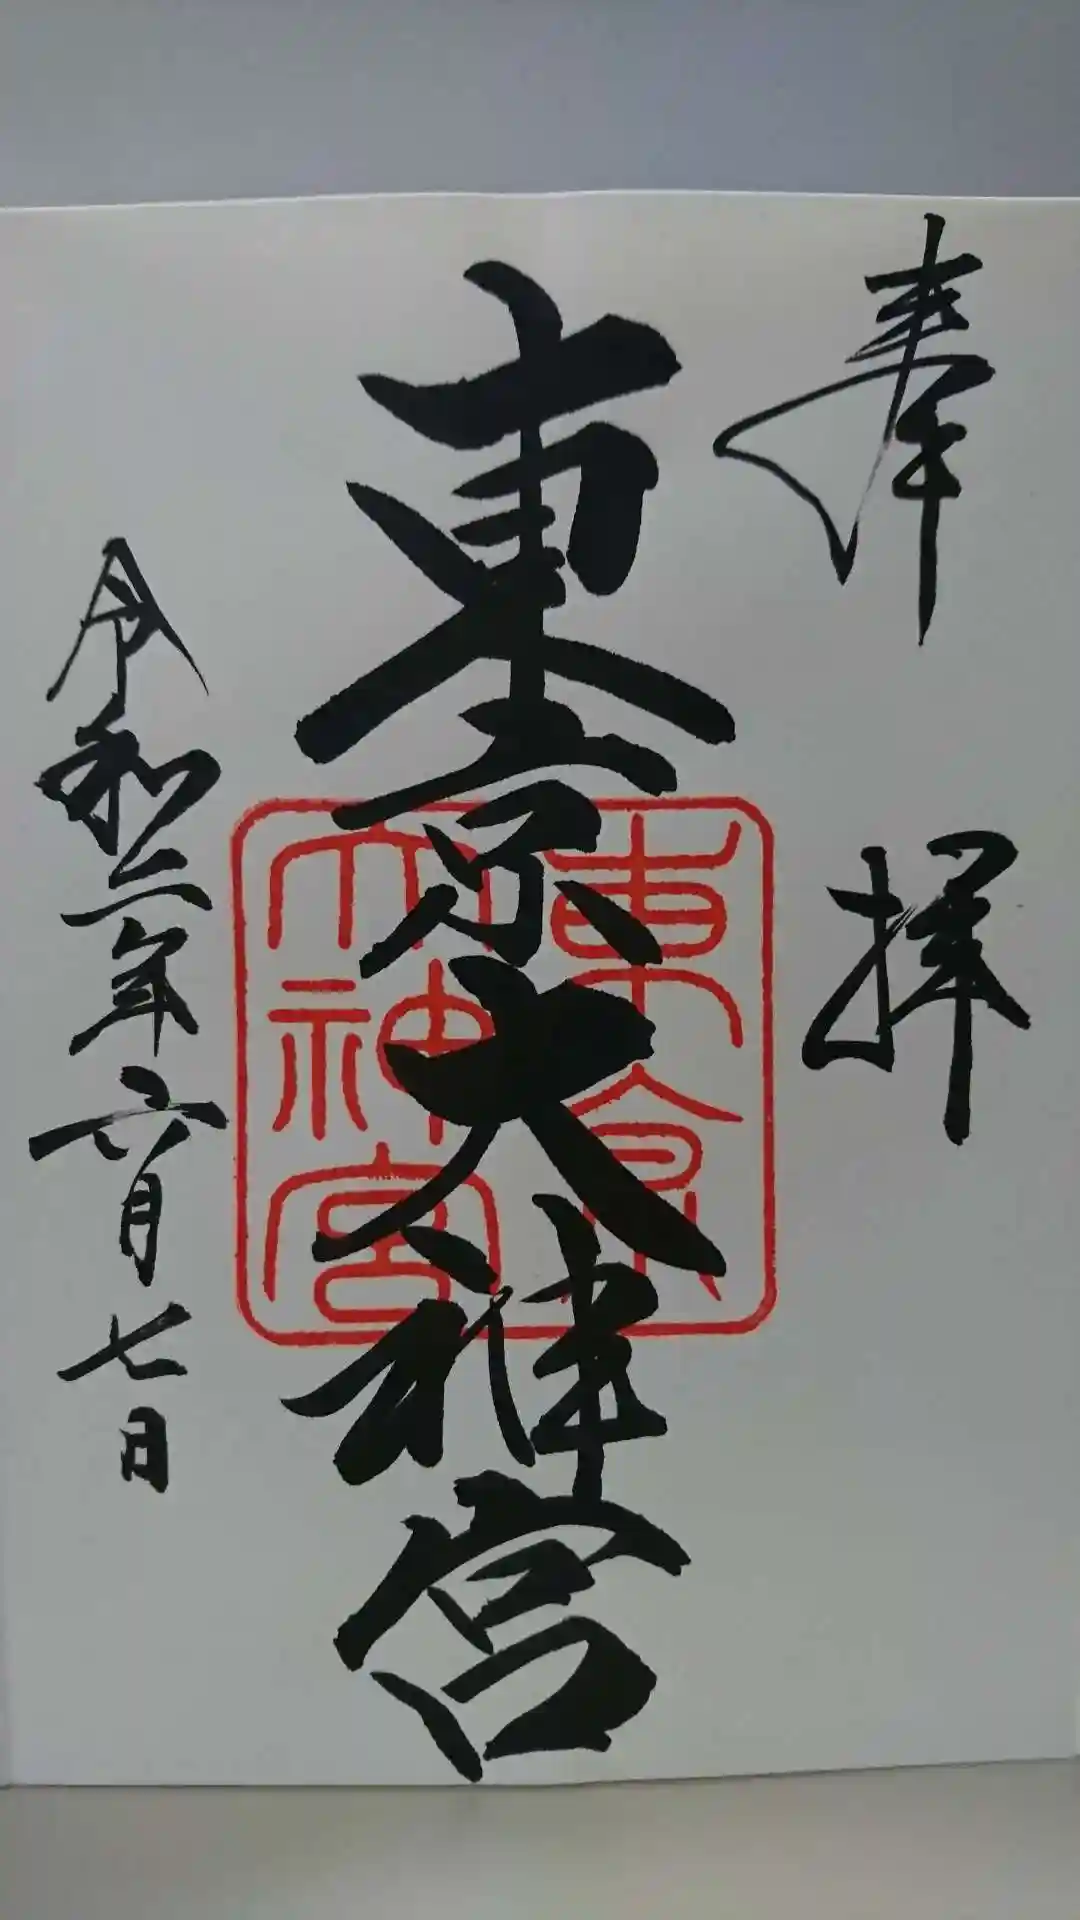 奉拝
東京大神宮
東京
大神宮
令和二年六月七日